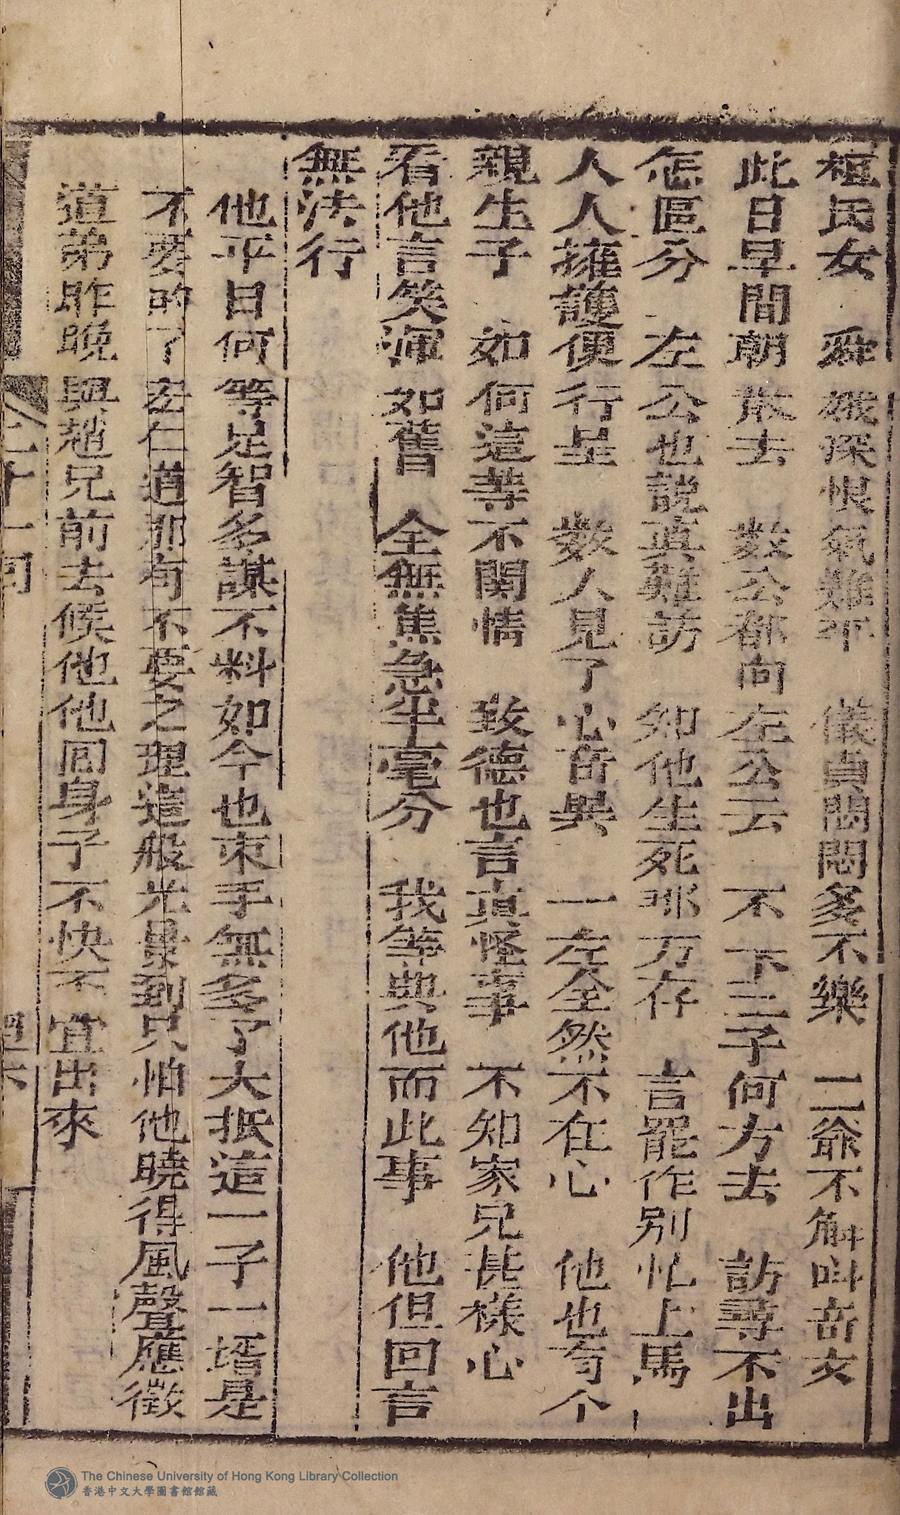 桓氏女　舜娥深恨氣難平　儀貞悶悶多不樂　二爺不解呌奇文
此日早間朝散去　数公都向左公云　不下三子何方去　訪尋不出
怎區分　左公也說真難訪　知他生死那方存　言罷作别忙上馬
人人擁護便行呈　数人見了心奇異　一左全然不在心　他也有个
親生子　如何這等不関情　致德也言真怪事　不知家兄甚樣心
看他言笑渾如舊　全無焦急半毫分　我等與他而此事　他但回言
無法行
他平日何等足智多謀不料如今也束手無多了大抵這一子一壻是
不要的了宏仁道那有不要之理這般光景到只怕他曉得風聲應徵
道弟昨晚與趙兄前去候他他回身子不快不宜出來
二十一囘
香港中文大學圖書館館藏
The Chinese University of Hong Kong Library Collection